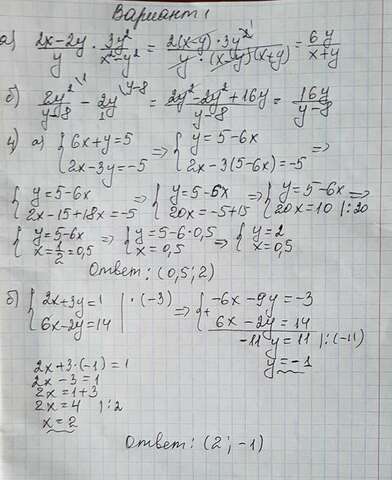 Вариант 1
а) (2x-2y)/y · 3y²/(x²-y²) = 2(x-y)·3y²/(y·(x-y)(x+y)) = 6y/(x+y)
б) 2y²/(y-8) \1 - 2y \y-8 = (2y²-2y²+16y)/(y-8) = 16y/(y-8)
4) а) { 6x+y=5 ; 2x-3y=-5 => { y=5-6x ; 2x-3(5-6x)=-5 =>
{ y=5-6x ; 2x-15+18x=-5 => { y=5-6x ; 20x=-5+15 => { y=5-6x ; 20x=10 |:20 =>
{ y=5-6x ; x=1/2=0,5 => { y=5-6·0,5 ; x=0,5 => { y=2 ; x=0,5
Ответ: (0,5; 2)
б) { 2x+3y=1 |·(-3) ; 6x-2y=14 => + { -6x-9y=-3 ; 6x-2y=14
-11y=11 |:(-11)
y=-1
2x+3·(-1)=1
2x-3=1
2x=1+3
2x=4 |:2
x=2
Ответ: (2; -1)